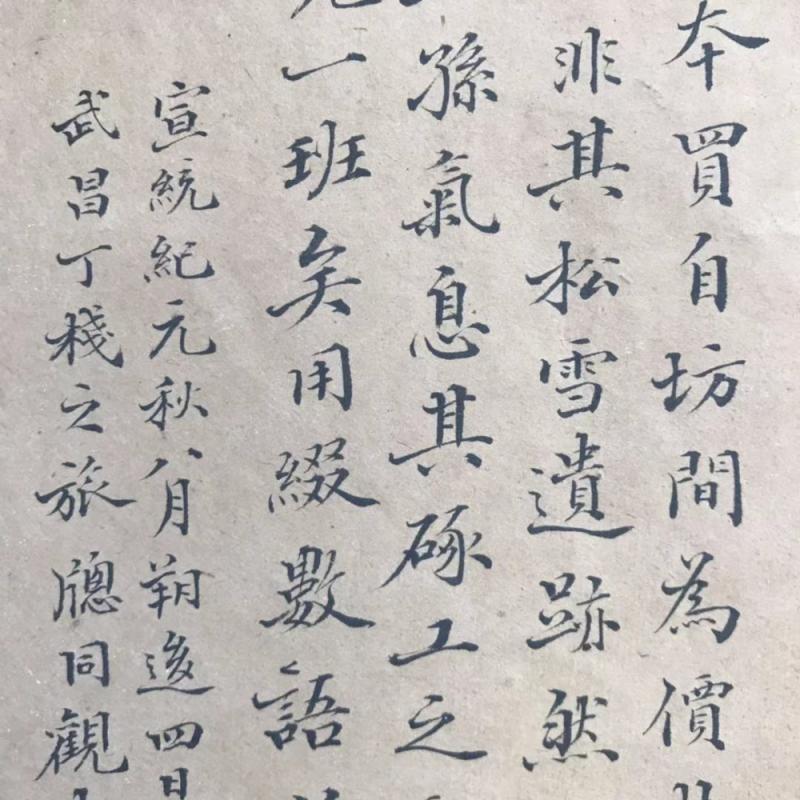 夲買自坊間為價
非其松雪遺跡然
孫氣息其琢工之
一班矣用綴數語
宣統紀元秋八月朔後四日
武昌丁棧之旅牕同觀